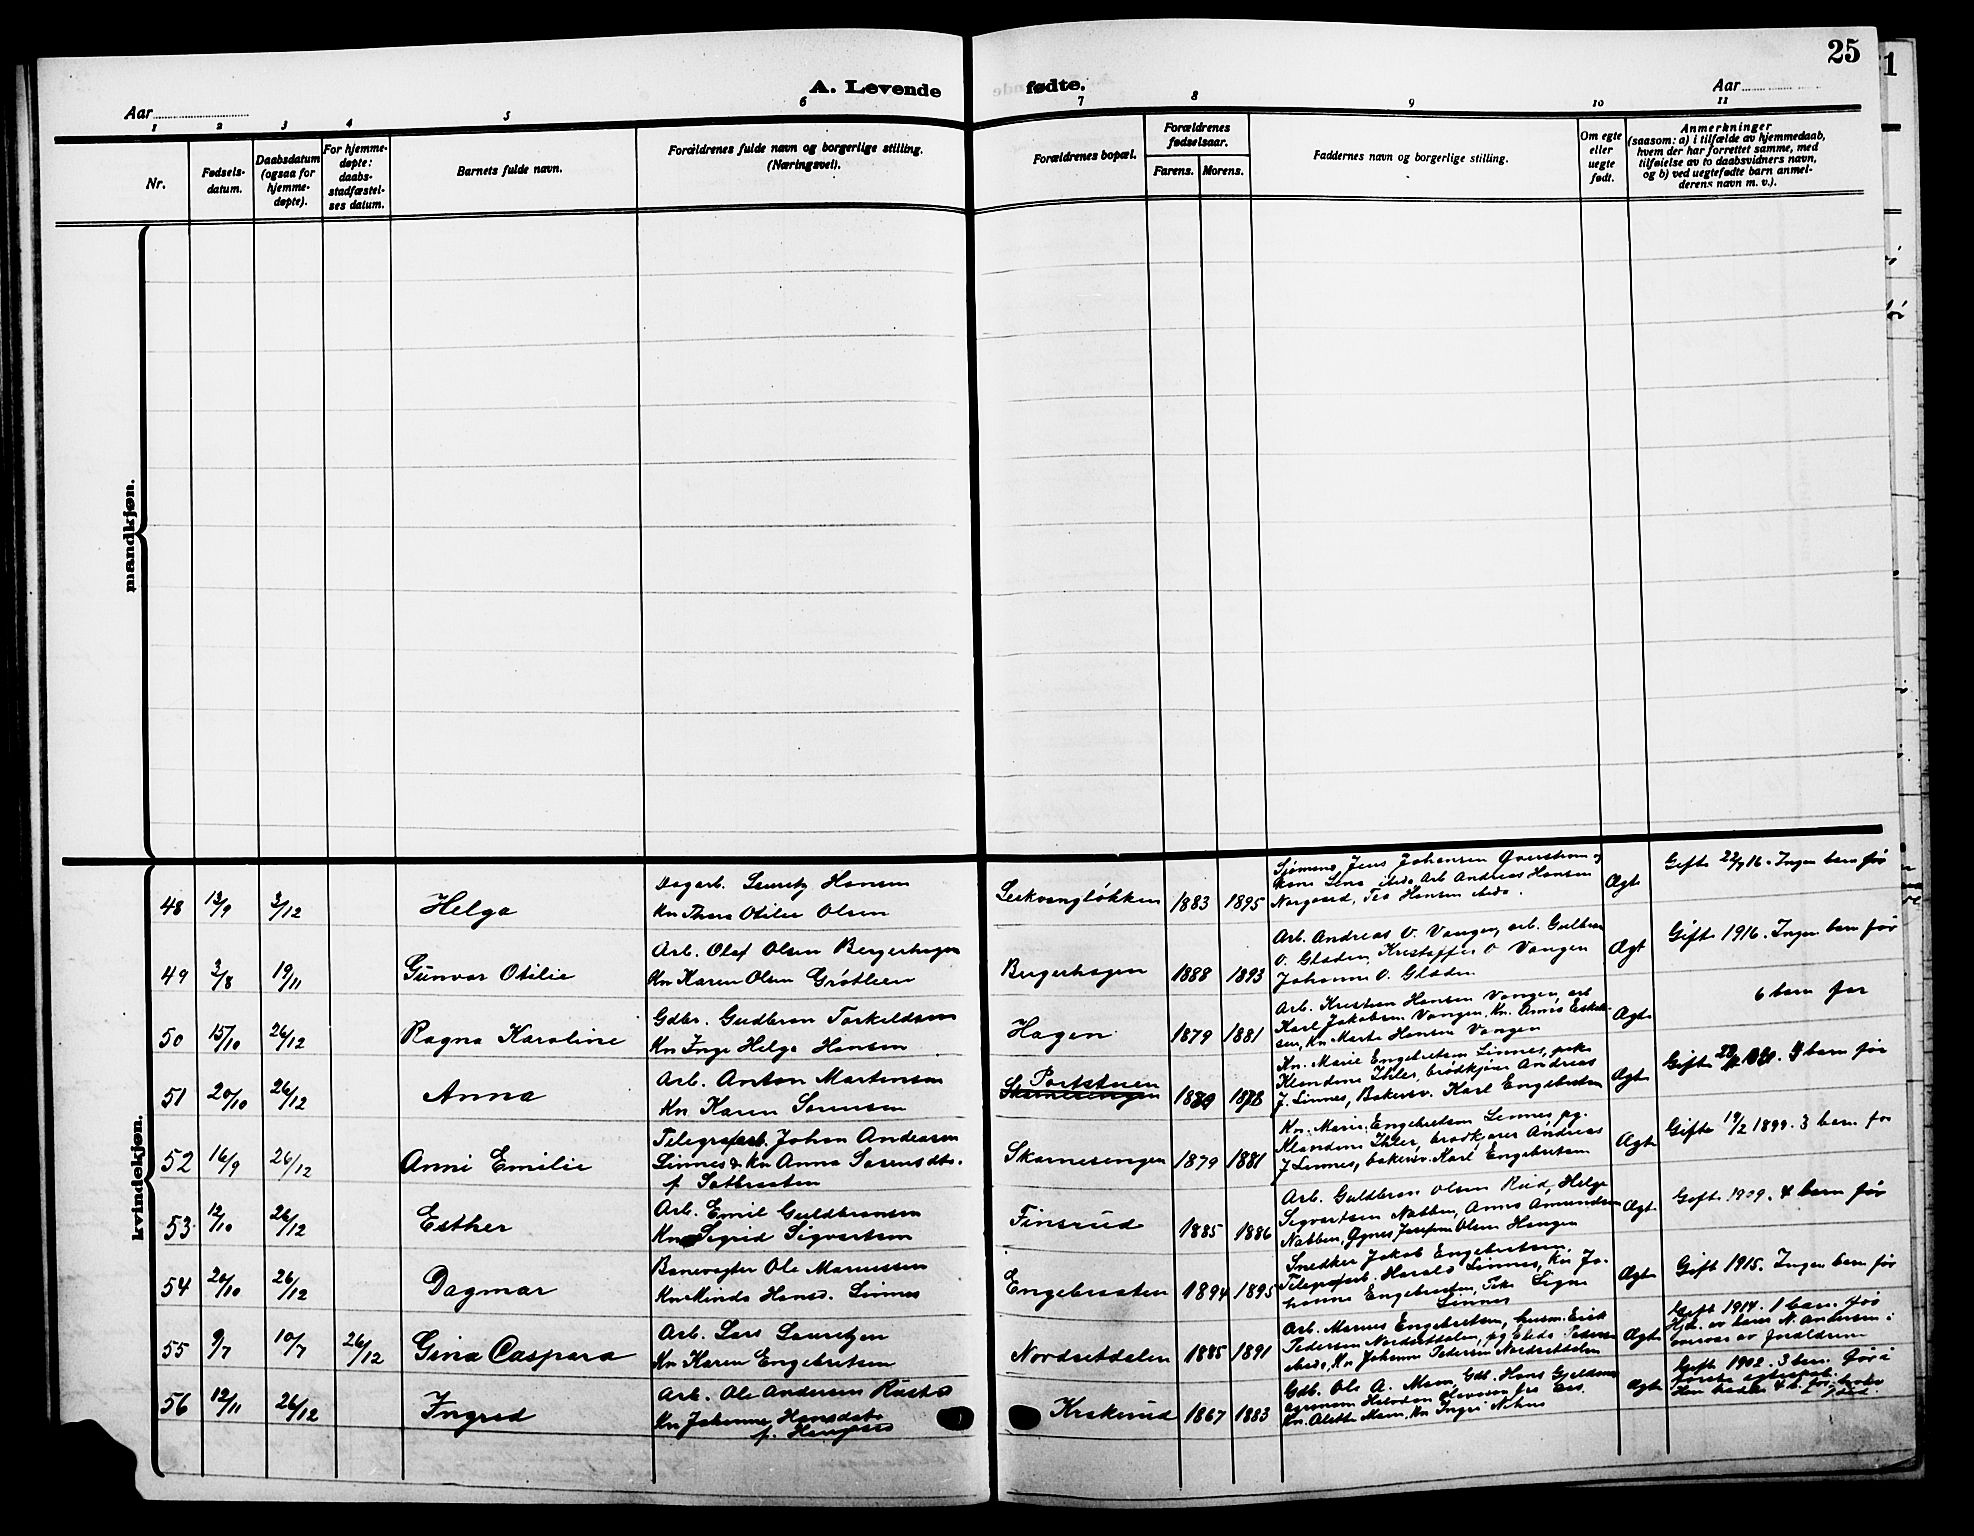 25
A. Levende fødte.
Aar
Aar
1 2 3 4 5 6 7 8 9 10 11
Nr.
Fødsels-
datum.
Daabsdatum
(ogsaa for
hjemme-
døpte).
For hjemme-
døpte:
daabs-
stadfæstel-
ses datum.
Barnets fulde navn.
Forældrenes fulde navn og borgerlige stilling.
(Næringsvei).
Forældrenes bopæl.
Forældrenes
fødselsaar.
Farens. Morens.
Faddernes navn og borgerlige stilling.
Om egte
eller
uegte
født.
Anmerkninger
(saasom: a) i tilfælde av hjemmedaab,
hvem der har forrettet samme, med
tilføielse av to daabsvidners navn,
og b) ved uegtefødte barn anmel-
derens navn m. v.).
mandkjøn.
kvindekjøn.
48 13/9 3/12 Helga
Dagarb. Lauritz Hansen
Kn Thora Otilie Olsen
1883 1895
Jens Johansen
kone Lena ibds. Arb Andreas Hansen
Norgaard, Hansen ibds.
Ægt
Gift 22/7 16. Ingen barn før
49 3/8 19/11 Gunvor Otilie
Arb. Olaf Olsen Bergerhagen
Kn Karen Olsen Grøtlien
Bergerhagen 1888 1893
Arb. Andreas O. Vangen, arb. Gulbran
O. Gladen, Kristoffer O Vangen
Johanne O. Gladen
Ægt
Gift 1916. Ingen barn før
50 15/10 26/12 Ragna Karoline
Gdbr. Gudbran Torkildsen
Kn Inga Helga Hansen
Hagen 1879 1881
Arb. Kristian Hansen Vangen, arb
Karl Jakobsen Vangen, Kn.
Kn Marte Hansen Vangen
Ægt
6 barn før
51 20/10 26/12 Anna
Arb. Anton Martinsen
Kn Karen Sørensen
Portstuen
Skarnesengen
Kn. Marie Engebretsen Linnes, pike
Klendine Ihler, brødkjører Andreas
J. Linnes, Bakersv. Karl Engebretsen
Ægt
Gift barn før
52 16/9 26/12 Anni Emilie
Telegrafarb. Johan Andersen
Linnes & Kn Anna Sørensdtr.
f.
Skarnesengen 1879 1881
Kn. Marie Engebretsen Linnes pg.
Klendine Ihler, brødkjører Andreas
J Linnes, bakersv. Karl Engebretsen
Ægt
Gift 19/2 1899. 3 barn før
53 12/10 26/12 Esther
Arb. Emil Guldbransen
Kn Sigrid Sigvartsen
Finsrud 1885 1886
Arb. Guldbran Olsen Ruud, Helge
Sigvartsen Nabben, Anna Amundsen
Nabben, Agnes Josefine Olsen Haugen
Ægt
Gift 1909. 4 barn før
54 20/10 26/12 Dagmar
Banevogter Ole Mariussen
Kn Minda Hansd. Linnes
Engebraaten 1894 1895
Snedker Jakob Engebretsen,
Telegrafarb. Harald Linnes, Kn Jo-
hanne Engebraaten, Pike Signe
Linnes
Ægt
Gift 1915. Ingen barn før
55 9/7 10/7 26/12 Gina Caspara
Arb. Lars Lauritzen
Kn Karen Engebretsen
Nordsetdalen 1885 1891
Arb. Marius Engebretsen, husm. Erik
Pedersen Nordsetdalen, pg Pedersen
ibds, Kn. Johanne Pedersen Nordsetdalen
Ægt
Gift 1914. 1 barn før
Hjd. av N. Andersen i
nærvær av forældrene
56 12/11 26/12 Ingrid
Arb. Ole Andersen Rustad
Kn Johanne Hansdatr
f.
Krakerud 1867 1883
Gdb. Ole A. Mam, Gdb. Hans
agronom
Kn. Alette Mam, Kn Ingri
Ægt
Gift 1902. 3 barn før i
første egteskab.